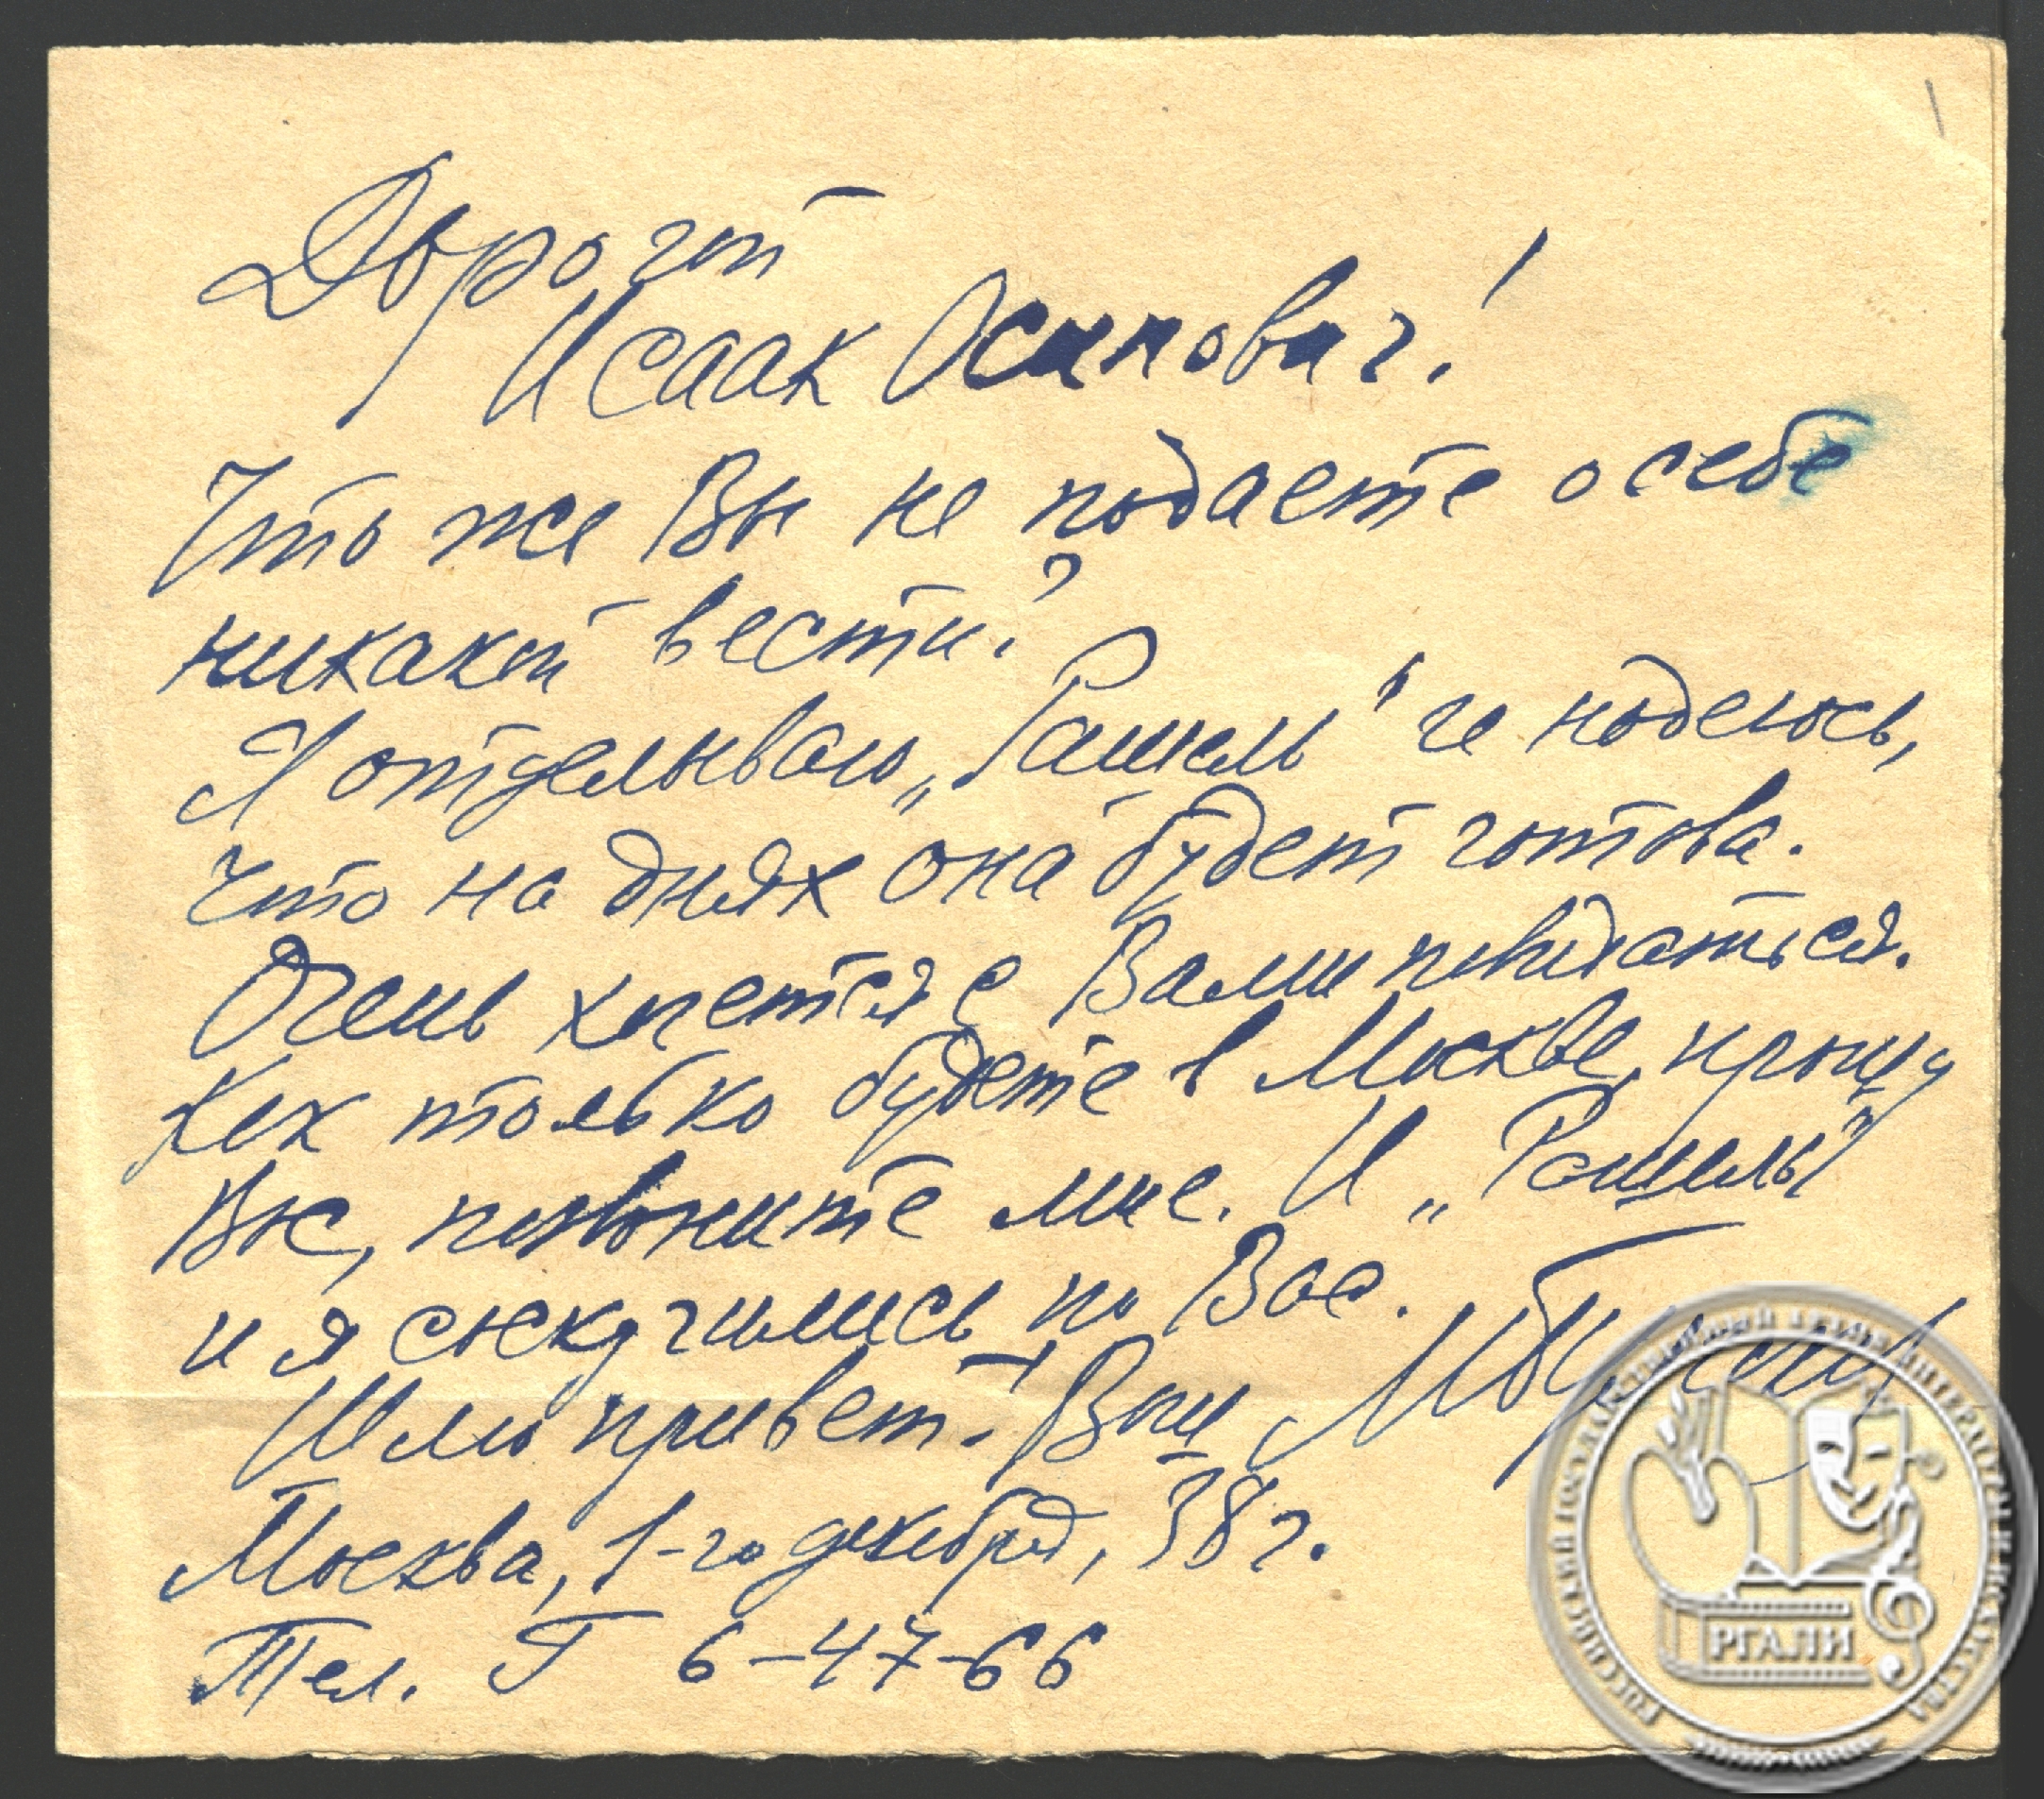 Дорогой
Исаак Осипович!
Что же Вы не подаете о себе
никакой вести?
Я отделываю „Рашель" и надеюсь,
что на днях она будет готова.
Очень хочется с Вами повидаться.
Как только будете в Москве, прошу
Вас, позвоните мне. И „Рашель"
и я соскучились по Вас.
Шлю привет. Ваш МБулгаков
Москва, 1-го декабря, 38 г.
Тел. Г 6-47-66
РГАЛИ